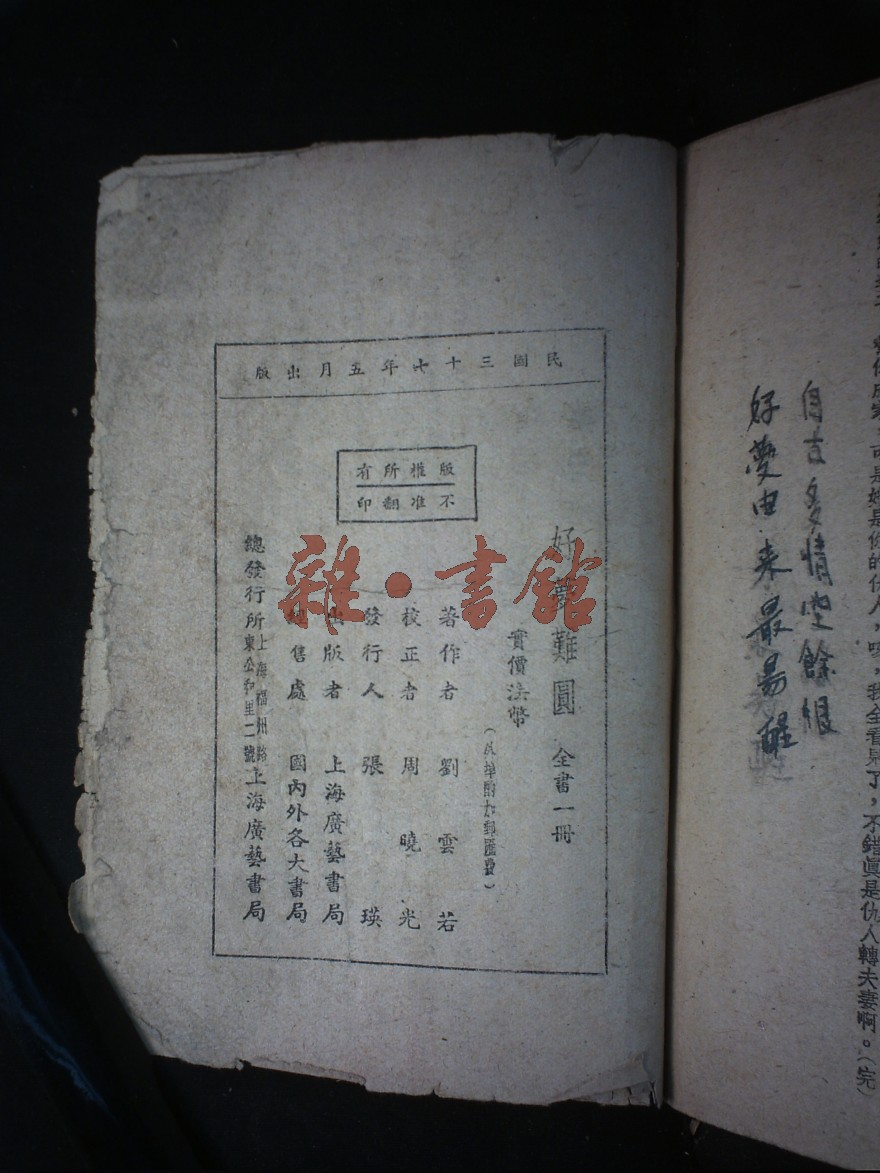 民國三十七年五月出版
版權所有
不准翻印
好夢難圓 全書一冊
實價法幣
(外埠酌加郵匯費)
著作者 劉雲若
校正者 周曉光
發行人 張瑛
出版者 上海廣藝書局
經售處 國內外各大書局
總發行所 上海福州路東公和里二號 上海廣藝書局
雜·書館
自古多情空餘恨
好夢由来最易醒
是你的仇人,咳,我全看見了,不錯眞是仇人轉夫妻啊。(完)